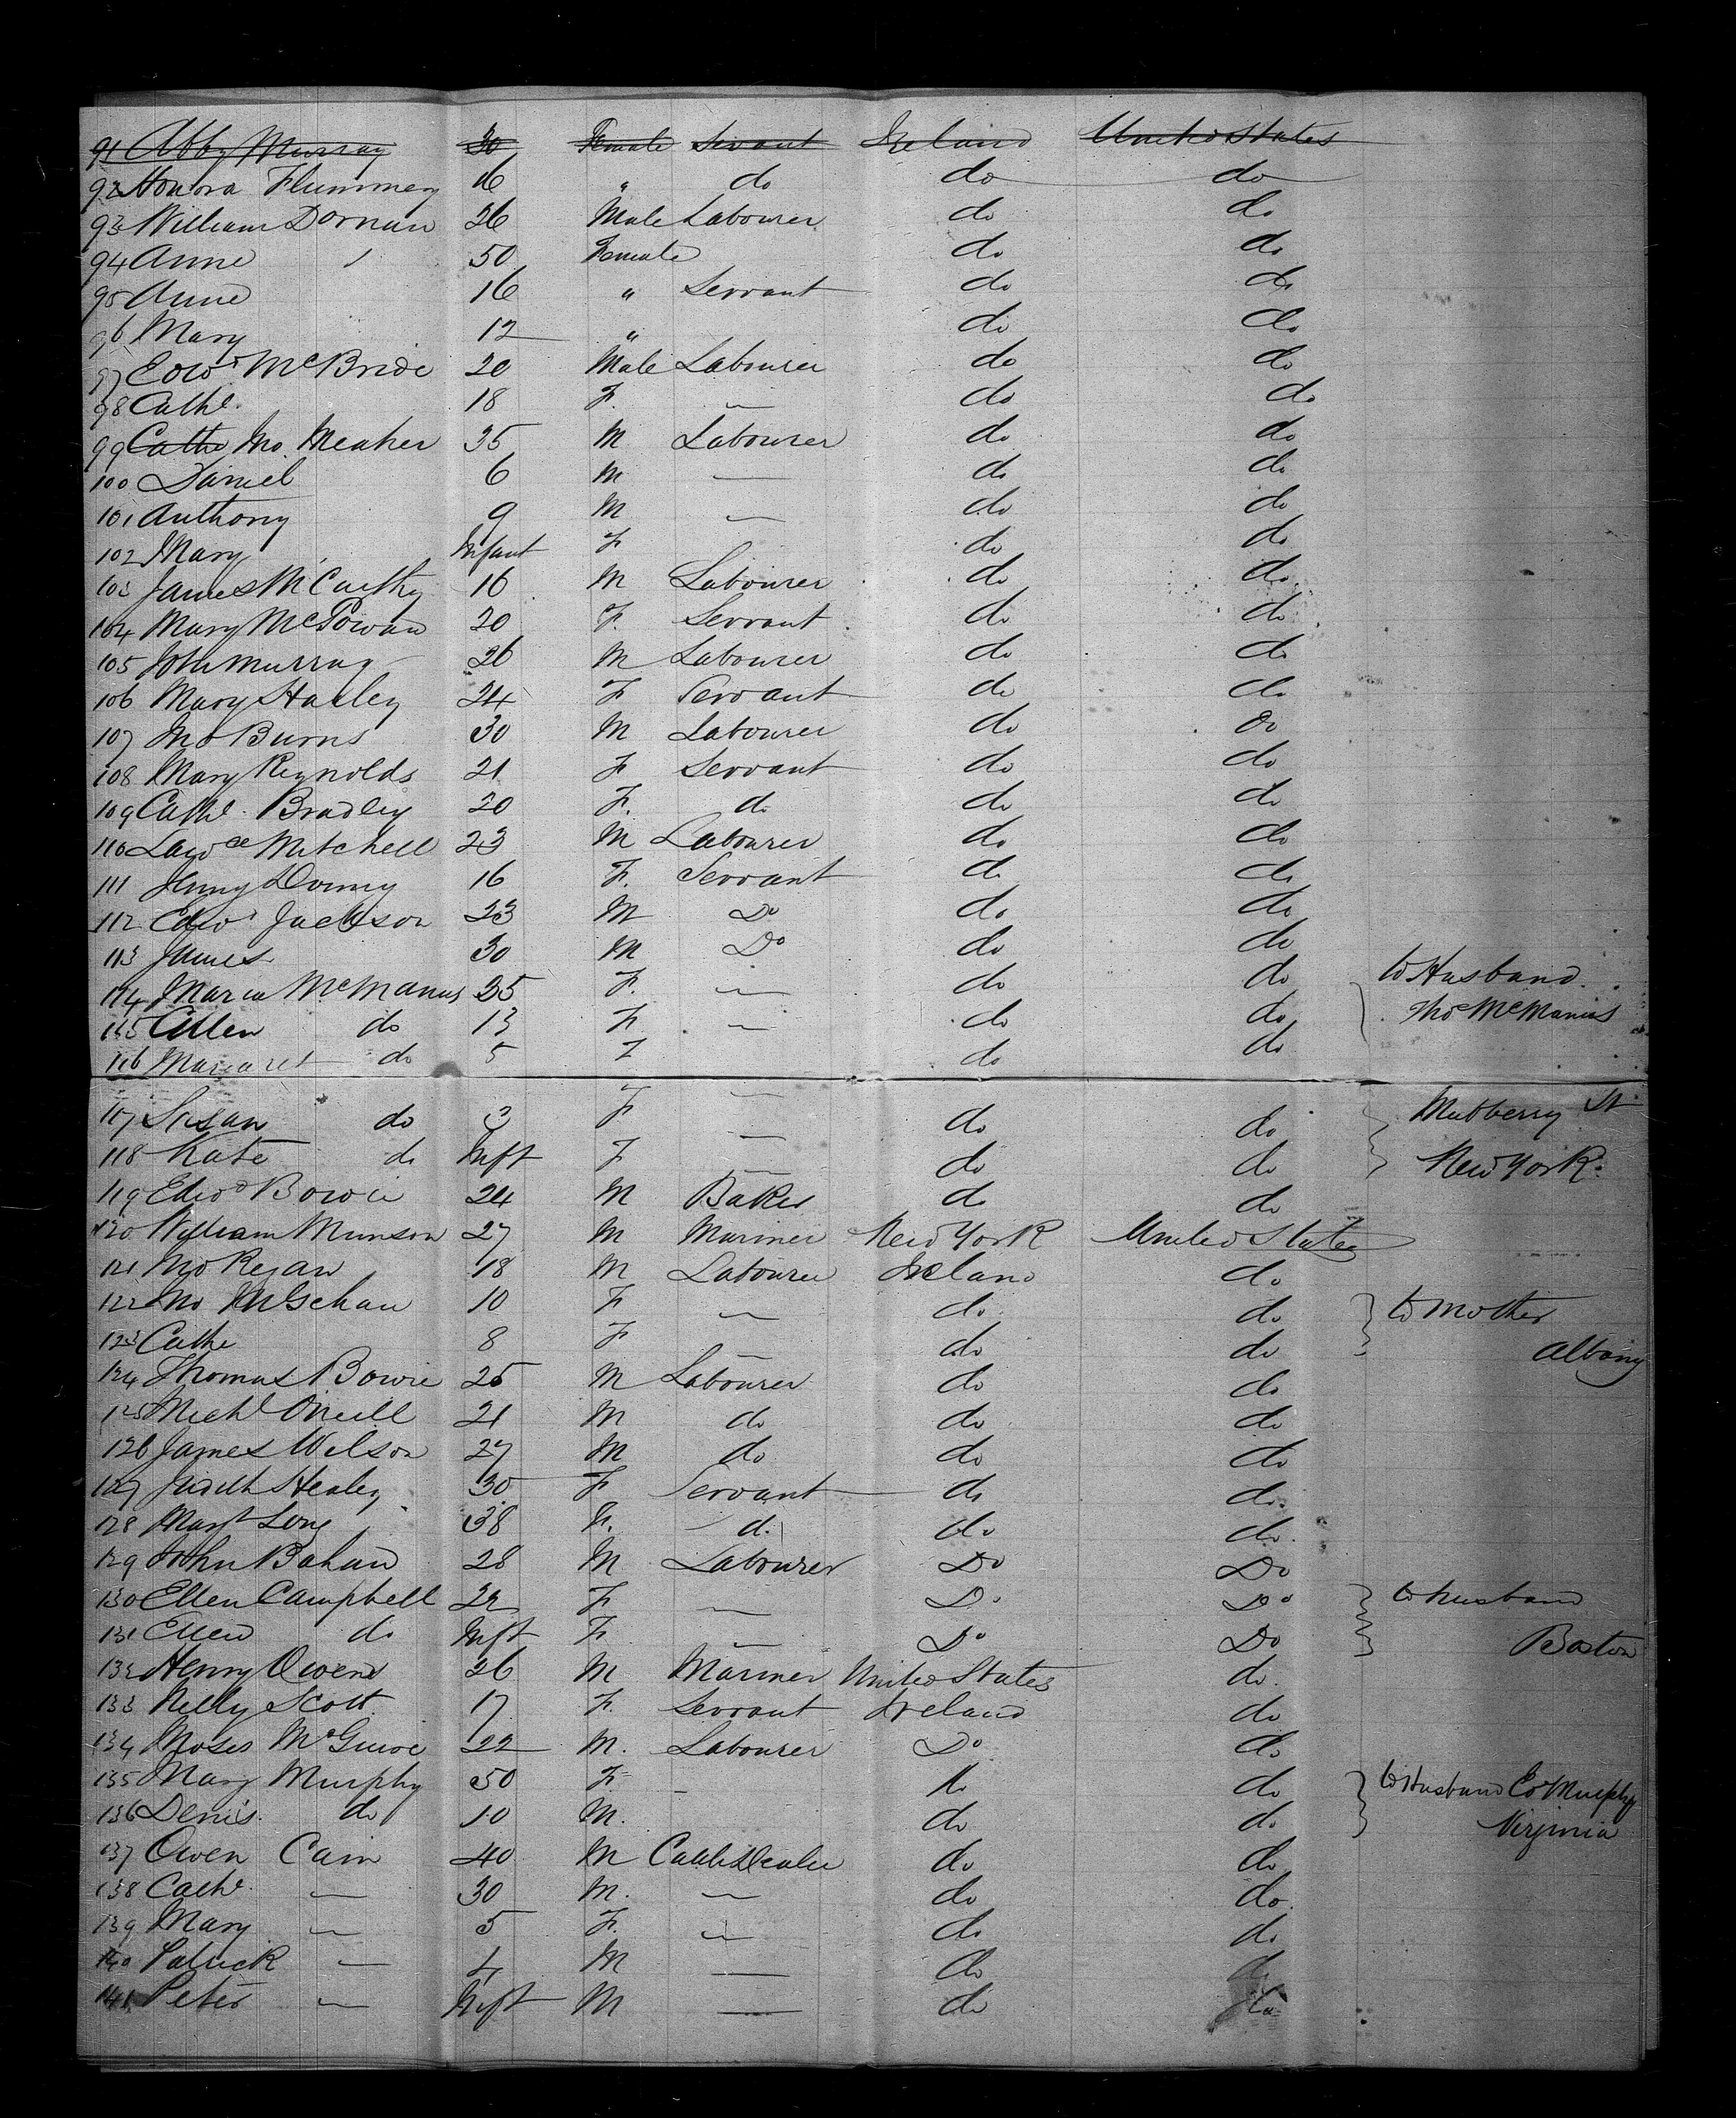 91 Abby Murray 30 Female Servant Ireland United States
92 Honora Flummery 16 " do do do
93 William Dornan 26 Male Labourer do do
94 Anne 50 Female do do
95 Anne 16 " Servant do do
96 Mary 12 " do do
97 Edwd McBride 20 Male Labourer do do
98 Cathe. 18 F. — do do
99 Cathe Jno. Meaher 35 M Labourer do do
100 Daniel 6 M — do do
101 Anthony 9 M — do do
102 Mary Infant F do do
103 James McCarthy 16 M Labourer do do
104 Mary McGowan 20 F. Servant do do
105 John Murray 26 M Labourer do do
106 Mary Hasley 24 F Servant do do
107 Jno Burns 30 M Labourer do do
108 Mary Reynolds 21 F Servant do do
109 Cathe. Bradley 20 F. do do do
110 Lawce Mitchell 23 M Labourer do do
111 Jenny Dorney 16 F. Servant do do
112 Edwd Jackson 23 M Do do do
113 James 30 M Do do do
114 Maria McManus 35 F. — do do to Husband
115 Ellen do 13 F — do do Thos McManus
116 Margaret do 5 F do do
117 Susan do 3 F — do do Mulberry St
118 Kate do Inft F — do do New York.
119 Edwd Bowie 24 M Baker do do
120 William Munson 27 M Mariner New York United States
121 Jno Regan 18 M Labourer Ireland do
122 Jno McGehan 10 F — do do to Mother
123 Cathe 8 F — do do Albany
124 Thomas Bowie 25 M Labourer do do
125 Michl Oneill 21 M do do do
126 James Wilson 27 M do do do
127 Judith Healey 30 F Servant do do
128 Margt Long 38 F. do do do
129 John Bahan 28 M Labourer Do Do
130 Ellen Campbell 22 F — Do Do to husband
131 Ellen do Inft F — Do Do Boston
132 Henry Owens 26 M Mariner United States do
133 Nelly Scott 17 F. Servant Ireland do
134 Moses McGuire 22 M. Labourer Do do
135 Mary Murphy 50 F. - do do to Husband Ed Murphy
136 Denis do 10 M. do do Virginia
137 Owen Cain 40 M Cattle Dealer do do
138 Cathe. — 30 M. — do do
139 Mary — 5 F. — do do
140 Patrick — 4 M — do do
141 Peter — Inft M — do do